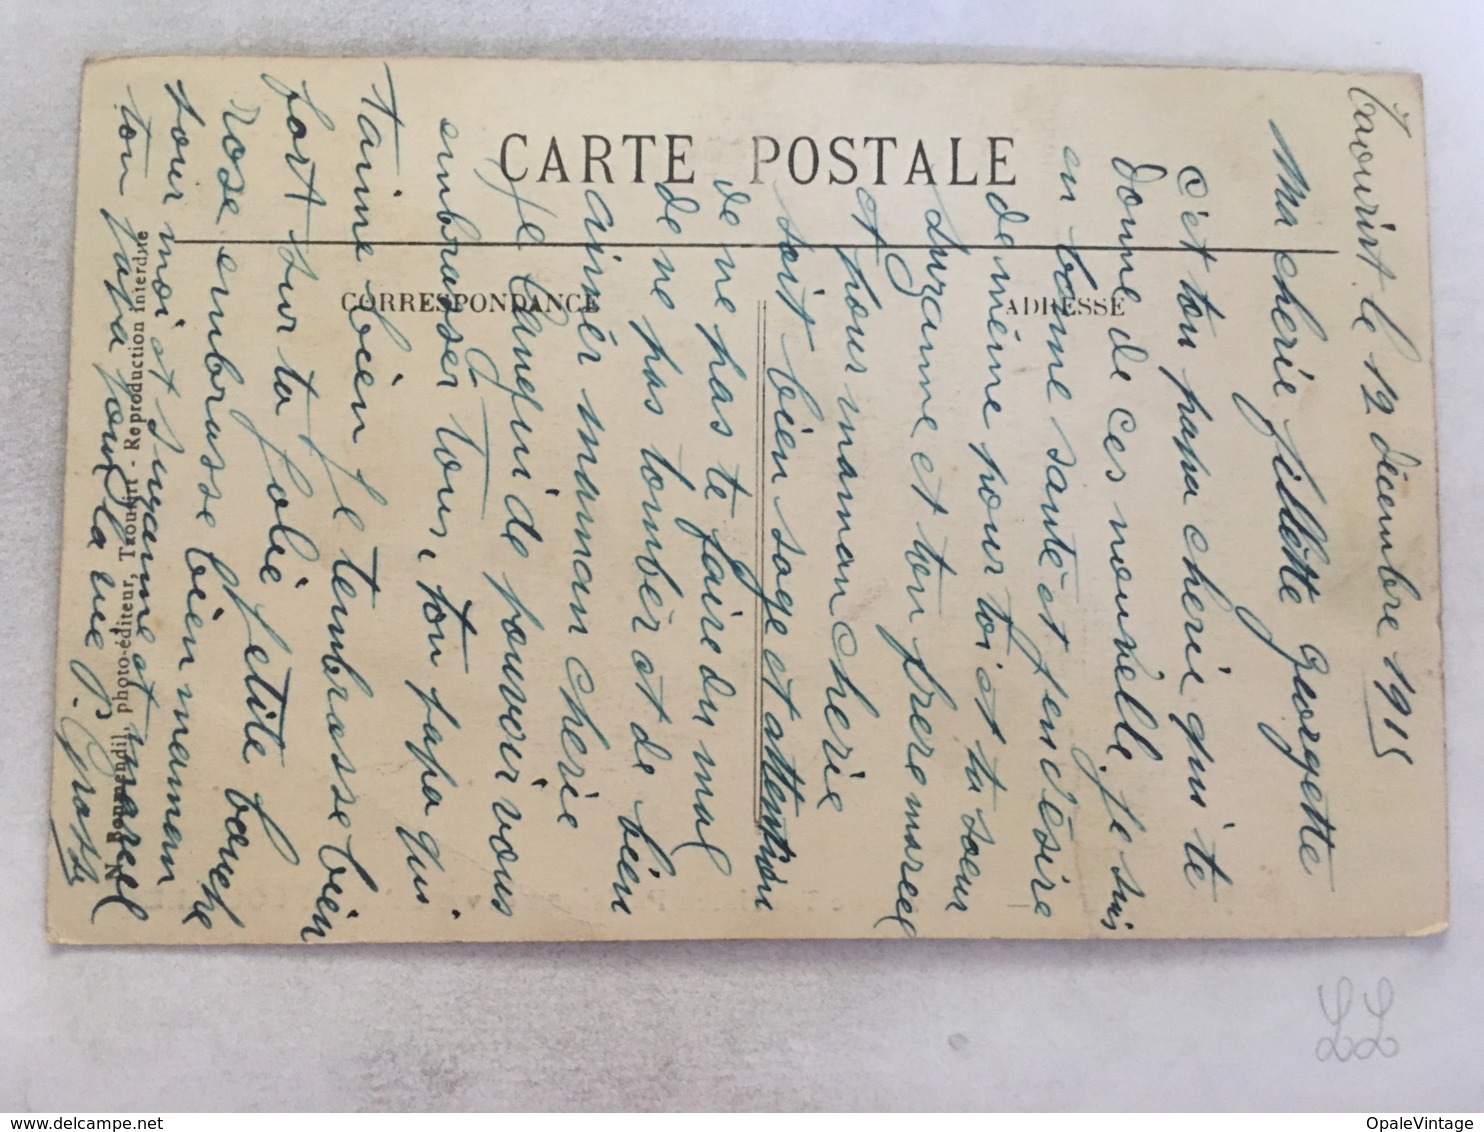 CARTE POSTALE
CORRESPONDANCE
ADRESSE
N. Boumendil, photo-éditeur, Taourirt - Reproduction interdite
Taourirt le 12 décembre 1915
Ma cherie fillette georgette
c'et ton papa cheri qui te
donne de ces nouvelle. je suis
en bonne santé et jen désire
de même pour toi et ta soeur
Suzanne et ton frere marcel
et pour maman cherie
soit bien sage et attention
de ne pas te faire du mal
de ne pas tomber et de bien
aimér maman cherie
je languide pouvoir vous
embrasser tous, ton papa qui
t'aime bien je tembrasse bien
fort sur ta jolie petite bouche
rose embrasse bien maman
pour moi et suzanne et marcel
ton papa pour la vie J.
LL
OpaleVintage
www.delcampe.net